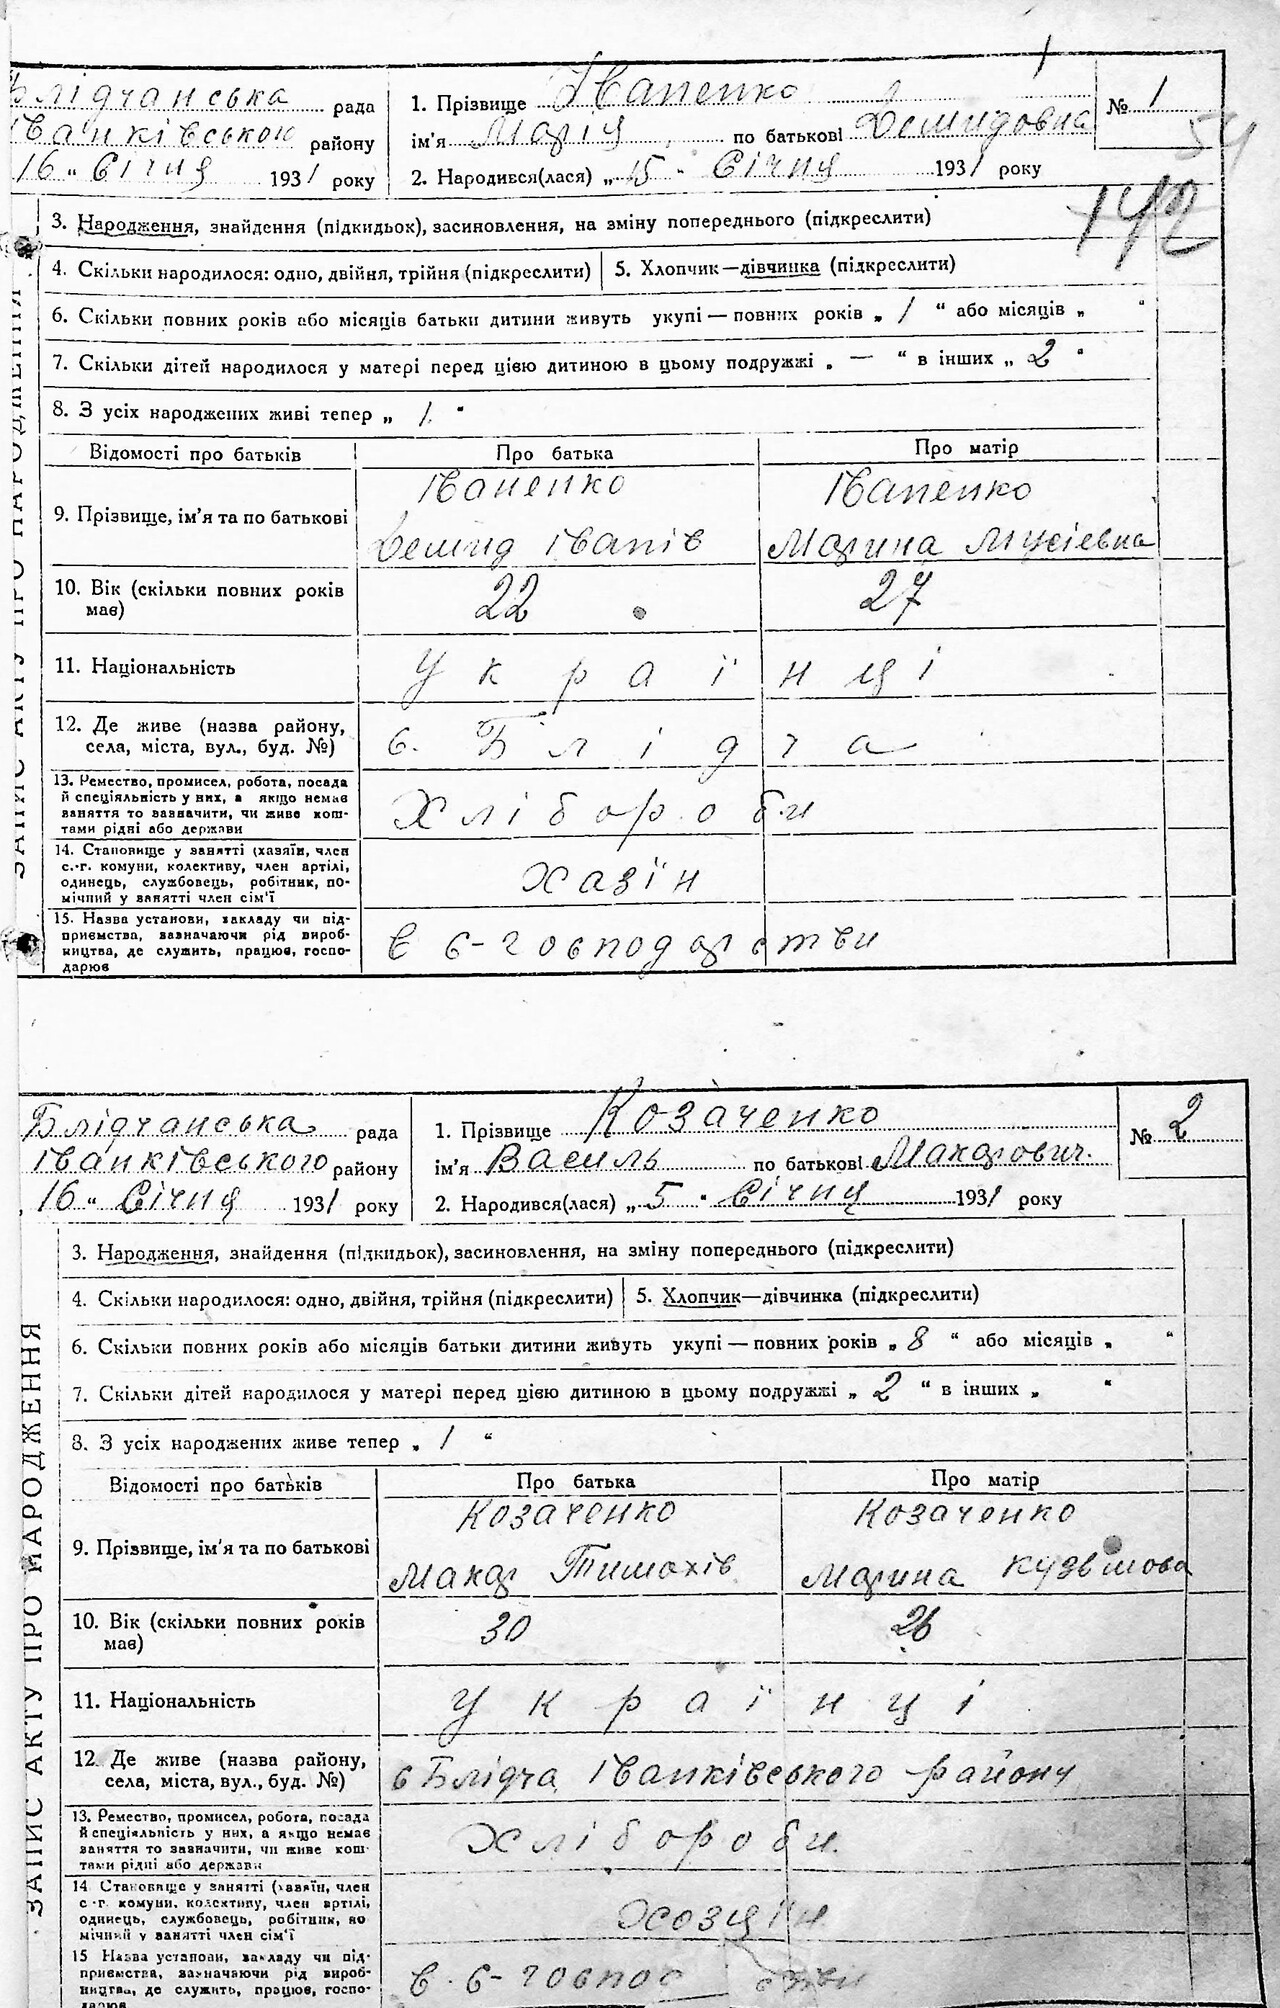 Блідчанська рада
Іванківською району
16 " Січня 1931 року
1. Прізвище Іваненко
ім'я Марія по батькові Демидовна
2. Народився(лася) „ 15 " Січня 1931 року
№ 1
54
142
ЗАПИС АКТУ ПРО НАРОДЖЕННЯ
3. Народження, знайдення (підкидьок), засиновлення, на зміну попереднього (підкреслити)
4. Скільки народилося: одно, двійня, трійня (підкреслити) 5. Хлопчик—дівчинка (підкреслити)
6. Скільки повних років або місяців батьки дитини живуть укупі — повних років „ 1 “ або місяців „ “
7. Скільки дітей народилося у матері перед цією дитиною в цьому подружжі „ — “ в інших „ 2 “
8. З усіх народжених живі тепер „ 1 “
Відомості про батьків Про батька Про матір
9. Прізвище, ім'я та по батькові
Іваненко Іваненко
Демид Іванів Марина Мусіевна
10. Вік (скільки повних років
має)
22 27
11. Національність Українці
12. Де живе (назва району,
села, міста, вул., буд. №)
с. Блідча
13. Ремество, промисел, робота, посада
й спеціяльність у них, а якщо немає
заняття то зазначити, чи живе кош-
тами рідні або держави
Хлібороби
14. Становище у занятті (хазяїн, член
с.-г. комуни, колективу, член артілі,
одинець, службовець, робітник, по-
мічний у занятті член сім'ї
хазїн
15. Назва установи, закладу чи під-
приємства, зазначаючи рід вироб-
ництва, де служить, працює, госпо-
дарює
в с-господарстви
Блідчанська рада
Іванківського району
16 " Січня 1931 року
1. Прізвище Козаченко
ім'я Василь по батькові Макарович.
2. Народився(лася) „ 5 " Січня 1931 року
№ 2
ЗАПИС АКТУ ПРО НАРОДЖЕННЯ
3. Народження, знайдення (підкидьок), засиновлення, на зміну попереднього (підкреслити)
4. Скільки народилося: одно, двійня, трійня (підкреслити) 5. Хлопчик—дівчинка (підкреслити)
6. Скільки повних років або місяців батьки дитини живуть укупі — повних років „ 8 “ або місяців „ “
7. Скільки дітей народилося у матері перед цією дитиною в цьому подружжі „ 2 “ в інших „ “
8. З усіх народжених живе тепер „ 1 “
Відомості про батьків Про батька Про матір
9. Прізвище, ім'я та по батькові
Козаченко Козаченко
Макар Тимохів Марина Кузьмова
10. Вік (скільки повних років
має)
30 26
11. Національність Українці
12. Де живе (назва району,
села, міста, вул., буд. №)
с Блідча Іванківського району
13. Ремество, промисел, робота, посада
й спеціяльність у них, а якщо немає
заняття то зазначити, чи живе кош-
тами рідні або держави
Хлібороби.
14 Становище у занятті (хазяїн, член
с.-г. комуни, колективу, член артілі,
одинець, службовець, робітник, по
мічний у занятті член сім'ї
хозяїн
15 Назва установи, закладу чи під-
приємства, зазначаючи рід вироб-
ництва, де служить, працює, госпо-
дарює
в с-госпос